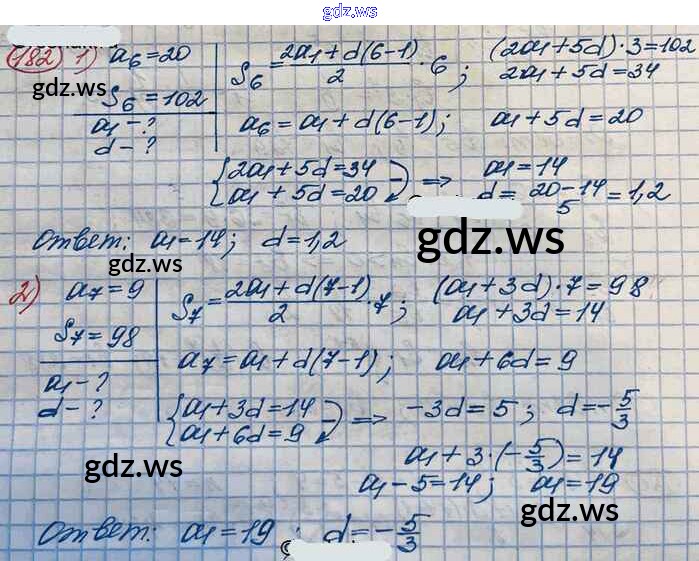 gdz.ws
182 1) a₆=20
S₆=102
a₁-?
d-?
S₆=(2a₁+d(6-1))/2·6; (2a₁+5d)·3=102
2a₁+5d=34
a₆=a₁+d(6-1); a₁+5d=20
{2a₁+5d=34
a₁+5d=20 ⇒ a₁=14
d=(20-14)/5=1,2
Ответ: a₁=14; d=1,2
gdz.ws
gdz.ws
gdz.ws
2) a₇=9
S₇=98
a₁-?
d-?
S₇=(2a₁+d(7-1))/2·7; (a₁+3d)·7=98
a₁+3d=14
a₇=a₁+d(7-1); a₁+6d=9
{a₁+3d=14
a₁+6d=9 ⇒ -3d=5; d=-5/3
a₁+3·(-5/3)=14
a₁-5=14; a₁=19
gdz.ws
gdz.ws
Ответ: a₁=19; d=-5/3